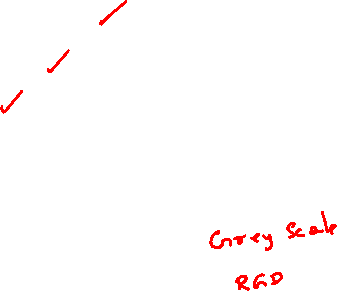 Grey Scale
RGD